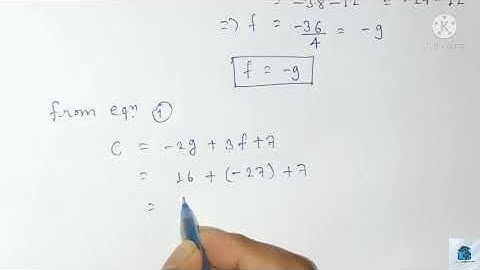 = -38-12
⇒ f = -36/4 = -9
f = -9
from eqn ①
C = -2g + 3f + 7
= 16 + (-27) + 7
=